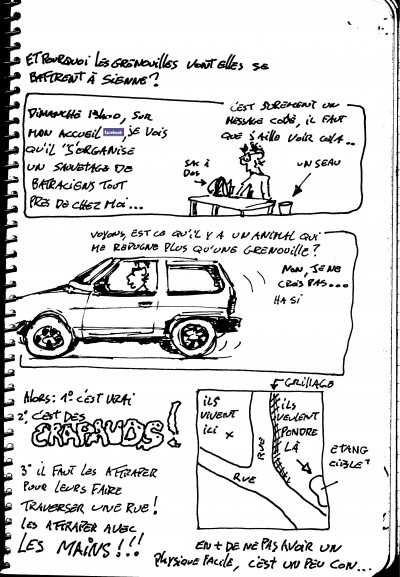 ET POURQUOI LES GRENOUILLES VONT ELLES SE
BATTRENT À SIENNE ?
DIMANCHE 19h00, SUR
MON ACCUEIL facebook, JE VOIS
QU'IL S'ORGANISE
UN SAUVETAGE DE
BATRACIENS TOUT
PRÈS DE CHEZ MOI...
C'EST SUREMENT UN
MESSAGE CODÉ, IL FAUT
QUE J'AILLE VOIR CELA...
SAC À
DOS
UN SEAU
VOYONS, EST CE QU'IL Y A UN ANIMAL QUI
ME REPUGNE PLUS QU'UNE GRENOUILLE ?
NON, JE NE
CROIS PAS....
HA SI
ALORS: 1° C'EST VRAI
2° C'EST DES
CRAPAUDS !
3° IL FAUT LES ATTRAPER
POUR LEURS FAIRE
TRAVERSER UNE RUE !
LES ATTRAPER AVEC
LES MAINS !!!
GRILLAGE
ILS
VIVENT
ICI x
RUE
RUE
ILS
VEULENT
PONDRE
LÀ
ETANG
EN + DE NE PAS AVOIR UN
PHYSIQUE FACILE, C'EST UN PEU CON...